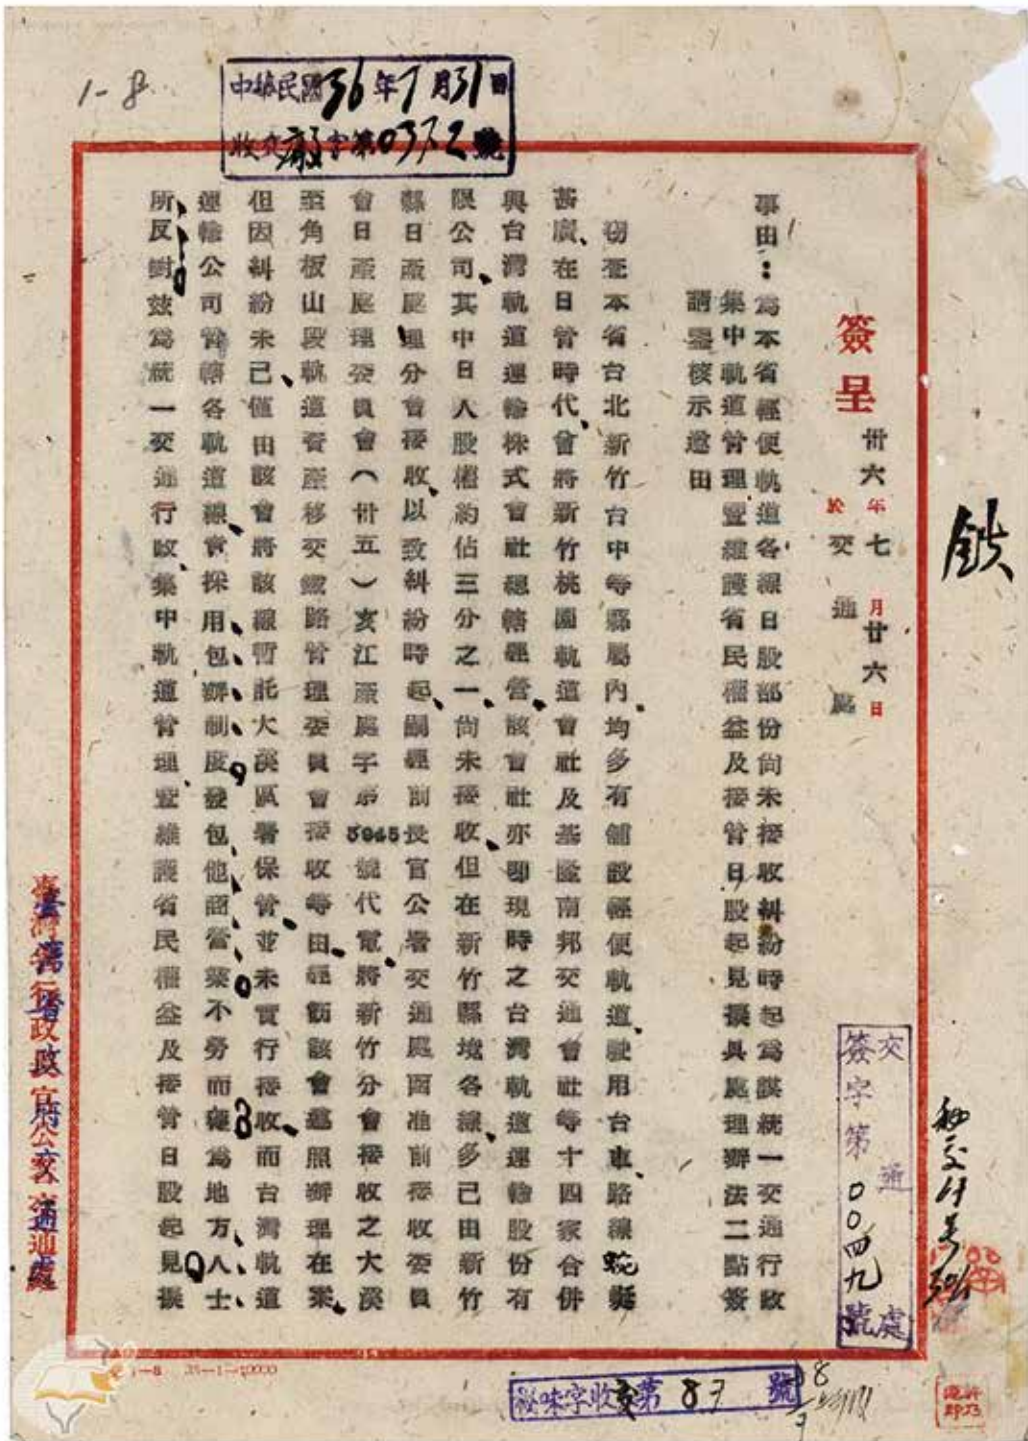 1-8
中華民國36年7月31日
收交廠字第0372號
簽呈
卅六年七月廿六日
於交通處
事由：為本省輕便軌道各線日股部份尚未接收糾紛時起為謀統一交通行政
集中軌道管理暨維護省民權益及接管日股起見擬具處理辦法二點簽
請鑒核示遵由
竊查本省台北新竹台中等縣屬內、均多有舖設輕便軌道、駛用台車、路線蜿蜒
甚廣、在日管時代、曾將新竹桃園軌道會社及基隆南邦交通會社等十四家合併
與台灣軌道運輸株式會社總轄經營、該會社亦即現時之台灣軌道運輸股份有
限公司、其中日人股權約佔三分之一、尚未接收、但在新竹縣境各線、多已由新竹
縣日產處理分會接收、以致糾紛時起、嗣經前長官公署交通處函准前接收委員
會日產處理委員會（卅五）亥江產處字第5945號代電、將新竹分會接收之大溪
至角板山段軌道資產移交鐵路管理委員會接收等由、經飭該會遵照辦理在案、
但因糾紛未已、僅由該會將該線暫託大溪區署保管、並未實行接收、而台灣軌道
運輸公司管轄各軌道線、會採用包辦制度、發包他商營業、不勞而穫、為地方人士
所反對、茲為統一交通行政、集中軌道管理、暨維護省民權益及接管日股起見、擬
交通處
簽字第〇〇四九號
鐵
臺灣省行政長官公署交通處
臺灣省政府交通處
35-1-10000
秘味字收文第87號